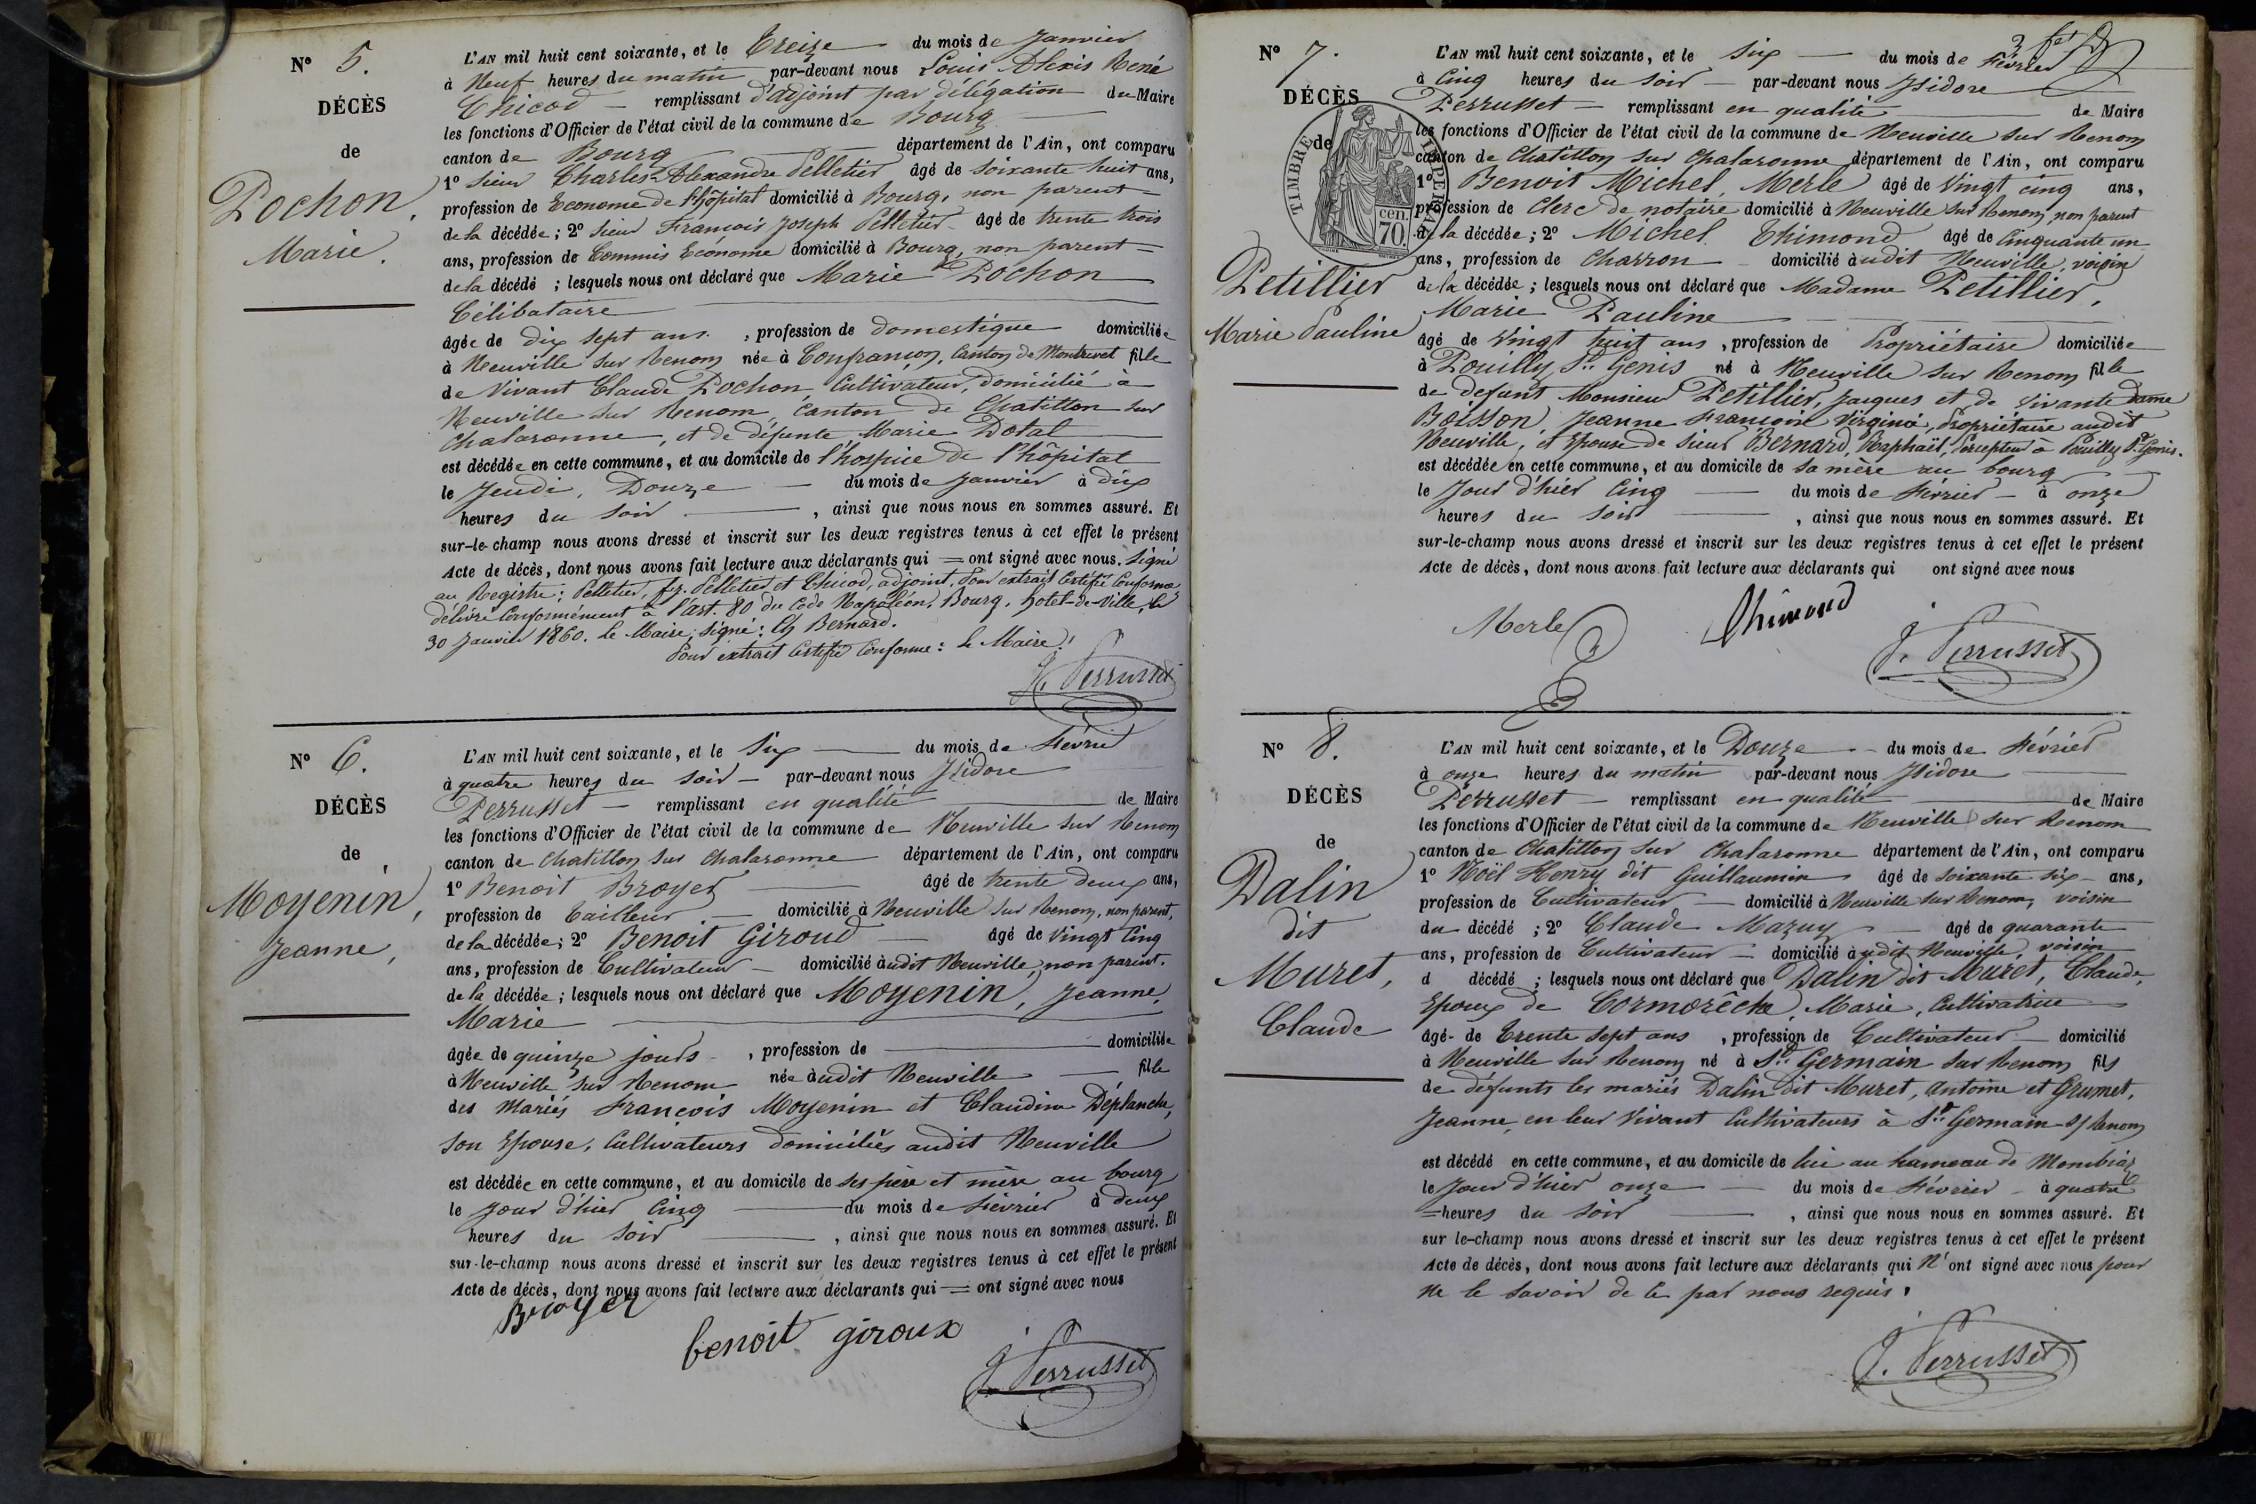 N° 5.
DÉCÈS
de
Pochon,
Marie.
L'AN mil huit cent soixante, et le Treize du mois de Janvier
à Neuf heures du matin par-devant nous Louis Alexis René
Chicod remplissant d'adjoint par délégation du Maire
les fonctions d'Officier de l'état civil de la commune de Bourg
canton de Bourg département de l'Ain, ont comparu
1° Sieur Charles-Alexandre Pelletier âgé de soixante huit ans,
profession de Econome de l'hôpital domicilié à Bourg, non parent
de la décédée; 2° sieur François Joseph Pelletier âgé de trente trois
ans, profession de Commis Econome domicilié à Bourg, non parent
de la décédé ; lesquels nous ont déclaré que Marie Pochon
Célibataire
âgée de dix sept ans. , profession de domestique domiciliée
à Neuville sur Renom née à Confrançon, Canton de Montrevel fille
de Vivant Claude Pochon, Cultivateur, domicilié à
Neuville sur Renom, Canton de Chatillon sur
Chalaronne, et de défunte Marie Dotal
est décédée en cette commune, et au domicile de l'hospice de l'hôpital
le Jeudi, Douze du mois de Janvier à dix
heures du soir , ainsi que nous nous en sommes assuré. Et
sur-le-champ nous avons dressé et inscrit sur les deux registres tenus à cet effet le présent
Acte de décès, dont nous avons fait lecture aux déclarants qui = ont signé avec nous. Signé
au Registre: Pelletier, fz. Pelletier et Chicod, adjoint. Pour extrait Certifié Conforme
délivré Conformément à l'art. 80 du Code Napoléon. Bourg, hotel-de-ville, le
30 Janvier 1860. Le Maire, signé: Ch Bernard.
Pour extrait Certifié Conforme: le Maire!
J. Perrusset
N° 6.
DÉCÈS
de
Moyenin,
Jeanne,
L'AN mil huit cent soixante, et le Six du mois de Février
à quatre heures du soir par-devant nous Isidore
Perrusset remplissant en qualité de Maire
les fonctions d'Officier de l'état civil de la commune de Neuville sur Renom
canton de Chatillon sur Chalaronne département de l'Ain, ont comparu
1° Benoit Broyer âgé de trente deux ans,
profession de Tailleur domicilié à Neuville sur Renom, non parent,
de la décédée; 2° Benoit Giroud âgé de Vingt Cinq
ans, profession de Cultivateur domicilié audit Neuville, non parent.
de la décédée; lesquels nous ont déclaré que Moyenin, Jeanne,
Marie
âgée de quinze jours , profession de domiciliée
à Neuville sur Renom née audit Neuville fille
des Mariés François Moyenin et Claudine Déplanche,
son Epouse, Cultivateurs domiciliés audit Neuville
est décédée en cette commune, et au domicile de ses père et mère au bourg
le jour d'hier Cinq du mois de Février à deux
heures du soir , ainsi que nous nous en sommes assuré. Et
sur-le-champ nous avons dressé et inscrit sur les deux registres tenus à cet effet le présent
Acte de décès, dont nous avons fait lecture aux déclarants qui = ont signé avec nous
Broyer
benoit giroux
J. Perrusset
N° 7.
DÉCÈS
de
TIMBRE IMPERIAL
70. cen.
Petillier
Marie Pauline
L'AN mil huit cent soixante, et le Six du mois de Février
à Cinq heures du soir par-devant nous Isidore
Perrusset remplissant en qualité de Maire
les fonctions d'Officier de l'état civil de la commune de Neuville sur Renom
canton de Chatillon sur Chalaronne département de l'Ain, ont comparu
1° Benoit Michel Merle âgé de Vingt cinq ans,
profession de Clerc de notaire domicilié à Neuville sur Renom, non parent
de la décédée; 2° Michel Thimond âgé de Cinquante un
ans, profession de Charron domicilié audit Neuville, voisin
de la décédée; lesquels nous ont déclaré que Madame Petillier,
Marie Pauline
âgé de Vingt huit ans , profession de Propriétaire domiciliée
à Pouilly St. Genis né à Neuville sur Renom fille
de defunt Monsieur Petillier, Jacques et de vivante Dame
Boisson, Jeanne Françoise Virginie, Propriétaire audit
Neuville, et Epouse de Sieur Bernard, Raphaël, Percepteur à Pouilly St. Genis.
est décédée en cette commune, et au domicile de sa mère au bourg
le Jour d'hier Cinq du mois de Février à onze
heures du soir , ainsi que nous nous en sommes assuré. Et
sur-le-champ nous avons dressé et inscrit sur les deux registres tenus à cet effet le présent
Acte de décès, dont nous avons fait lecture aux déclarants qui ont signé avec nous
Merle
Thimond
J. Perrusset
N° 8.
DÉCÈS
de
Dalin
dit
Muret,
Claude
L'AN mil huit cent soixante, et le Douze du mois de Février
à onze heures du matin par-devant nous Isidore
Perrusset remplissant en qualité de Maire
les fonctions d'Officier de l'état civil de la commune de Neuville sur Renom
canton de Chatillon sur Chalaronne département de l'Ain, ont comparu
1° Noël Henry dit Guillaumin âgé de soixante six ans,
profession de Cultivateur domicilié à Neuville sur Renom, voisin
du décédé ; 2° Claude Mazuy âgé de quarante
ans, profession de Cultivateur domicilié audit Neuville, voisin
d décédé ; lesquels nous ont déclaré que Dalin dit Muret, Claude,
Epoux de Cormorêche, Marie, Cultivatrice
âgé de Trente sept ans , profession de Cultivateur domicilié
à Neuville sur Renom né à St. Germain sur Renom fils
de défunts les mariés Dalin dit Muret, Antoine et Grumet,
Jeanne, en leur Vivant Cultivateurs à St. Germain s/ Renom
est décédé en cette commune, et au domicile de lui au hameau de
le Jour d'hier onze du mois de Février à quatre
=heures du soir , ainsi que nous nous en sommes assuré. Et
sur le-champ nous avons dressé et inscrit sur les deux registres tenus à cet effet le présent
Acte de décès, dont nous avons fait lecture aux déclarants qui N'ont signé avec nous pour
ne le savoir de ce par nous requis.
J. Perrusset